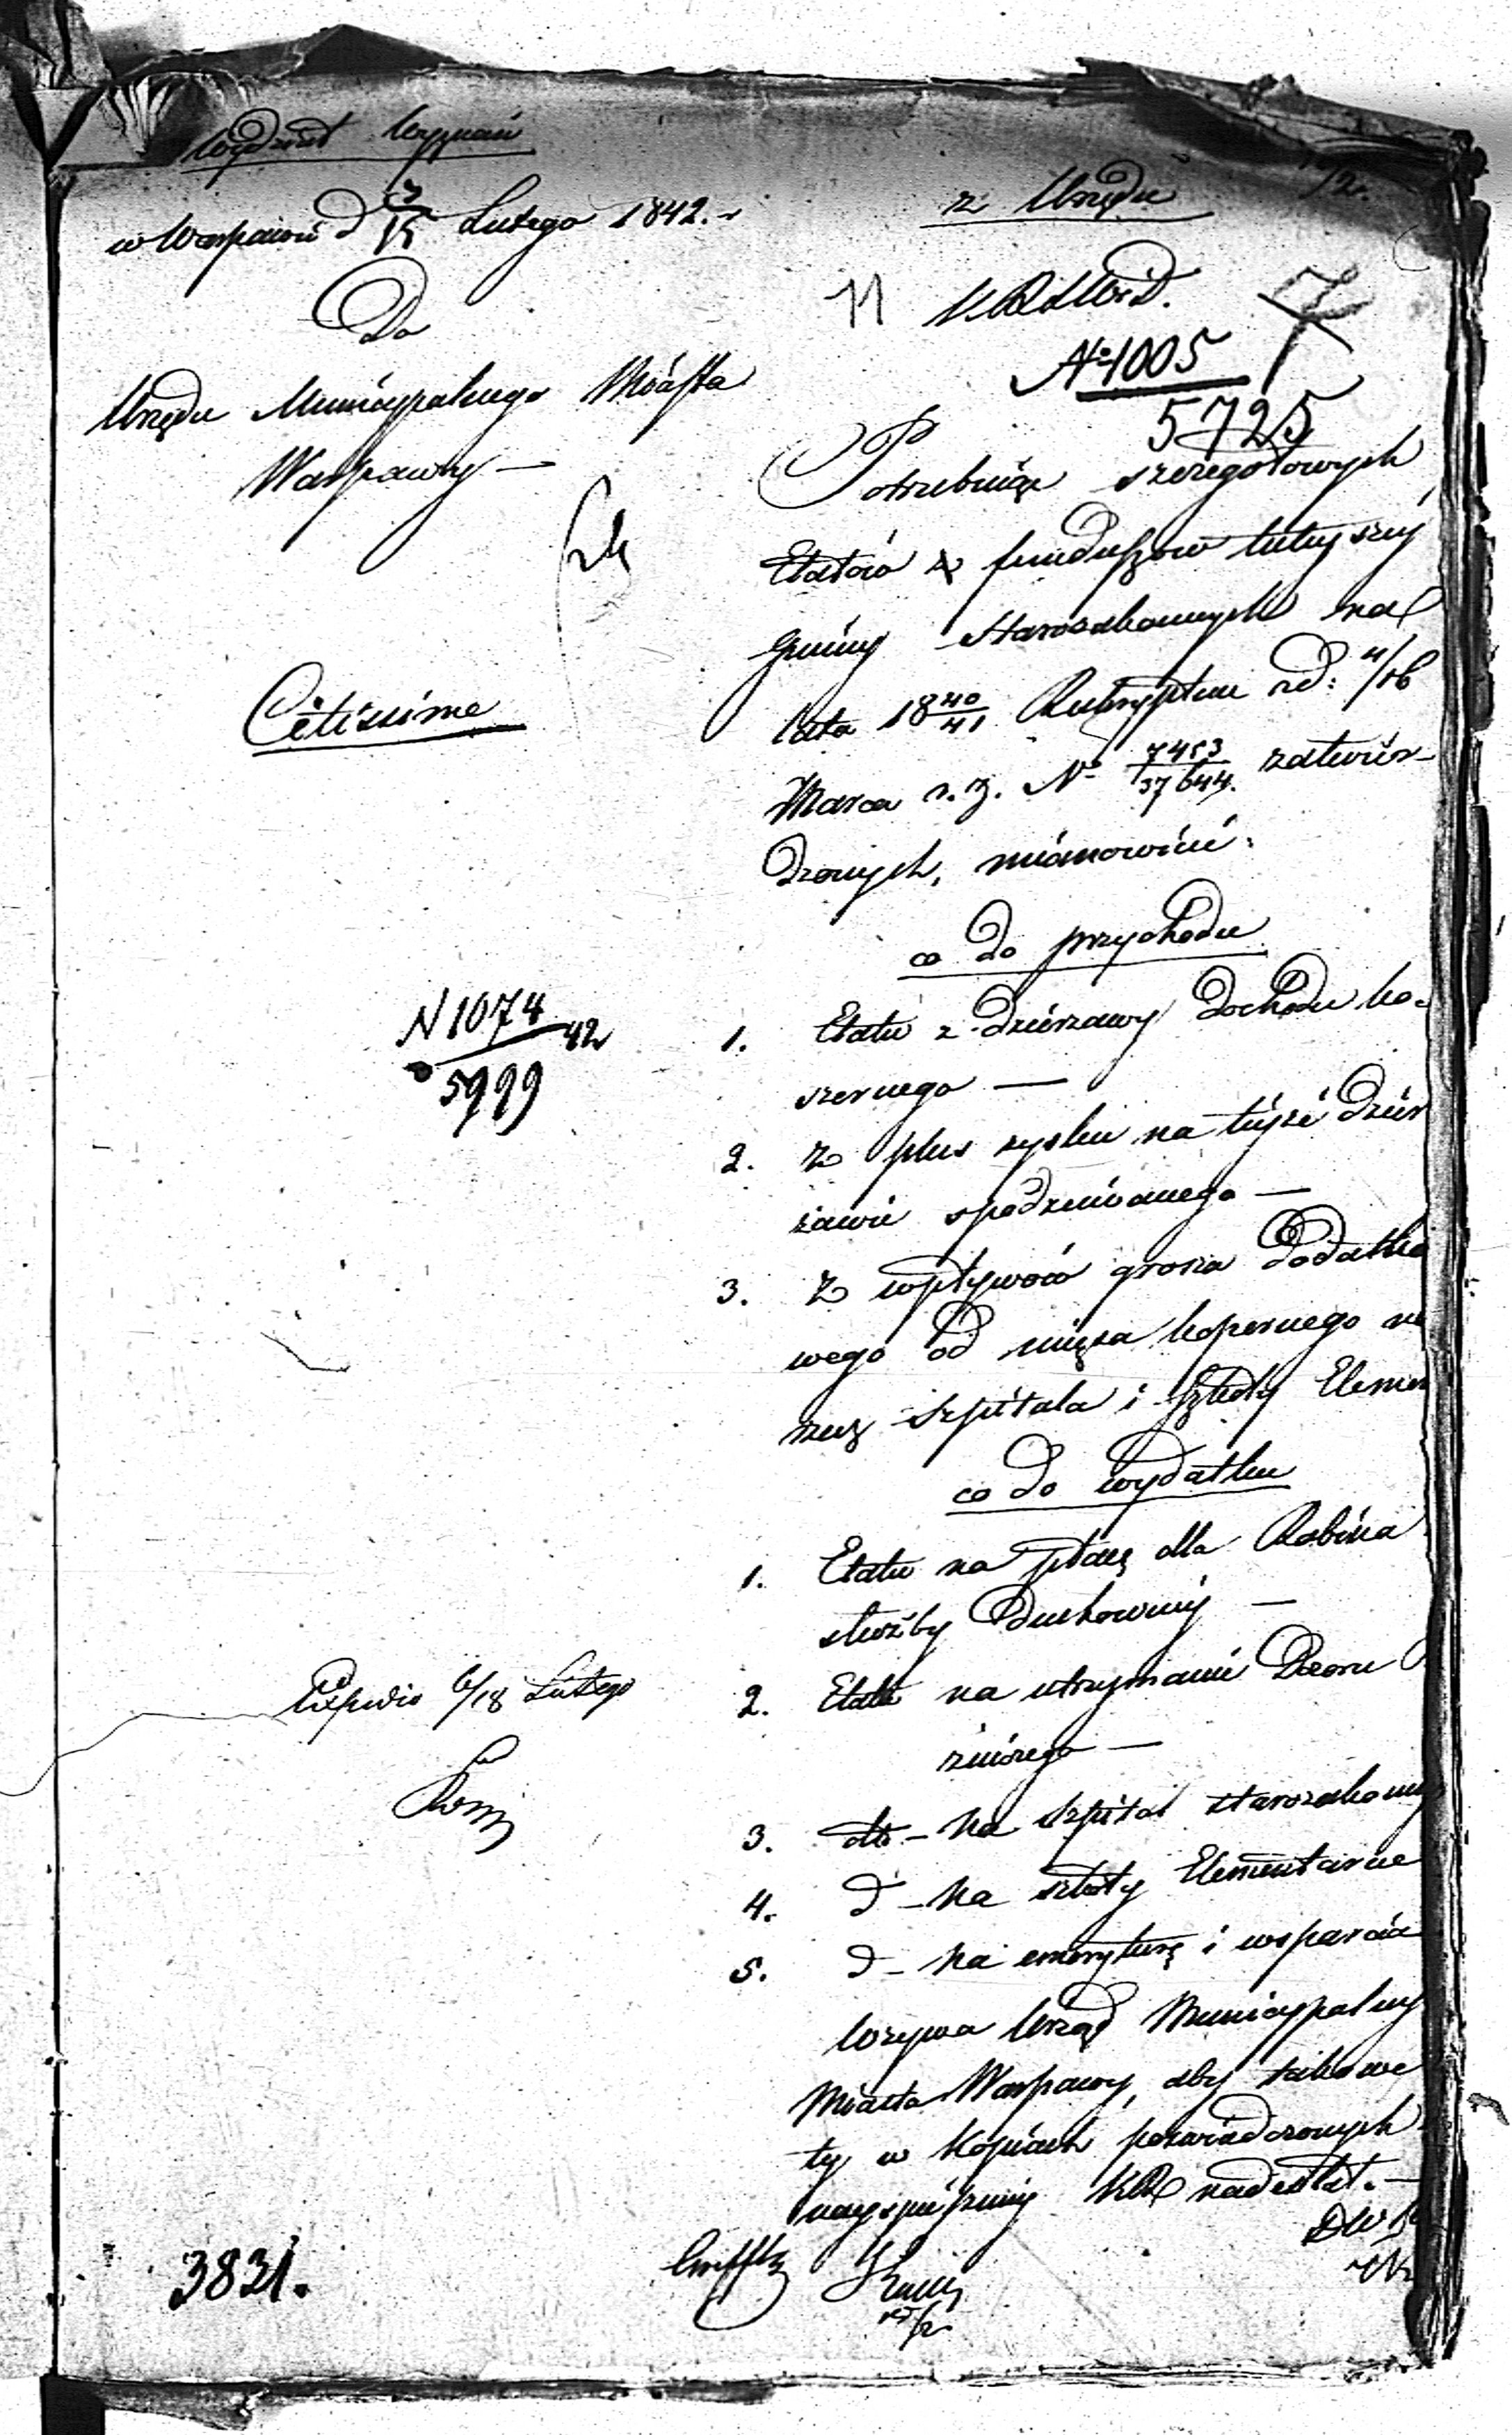 Wydział Wyznań
w Warszawie d 3/15 Lutego 1842. r
Do
Urzędu Municypalnego Miasta
Warszawy —
Citissime
N 1074/5999 42
Expedio 6/18 Lutego
3831.
z Urzędu
11
N. 1005
5725
7
Potrzebując szczegółowych
Etatów z funduszów tutejszéj
Gminy Starozakonnych na
lata 18 40/41 Reskryptem z d: 4/16
Marca r. z. No 7453/37644. zatwier-
dzonych, mianowicie:
co do przychodu
1. Etatu z dzierżawy dochodu ko-
szernego —
2. Z plus zysku na téjże dzier
żawie spodziewanego —
3. Z wpływów grosza dodatko
wego od mięsa koszernego na
rzecz Szpitala i Szkoły Elemen
co do wydatku
1. Etatu na płacę dla Rabina
służby Duchownéj —
2. Etatu na utrzymanie Dozoru
źniczego —
3. dto – na Szpital starozakonny
4. d – na szkoły Elementarne
5. d – na emeryturę i wsparcia
Wzywa Urząd Municypalny
Miasta Warszawy, aby takowe
ty w kopiach poświadczonych
najspieszniéj KR nadesłał. —